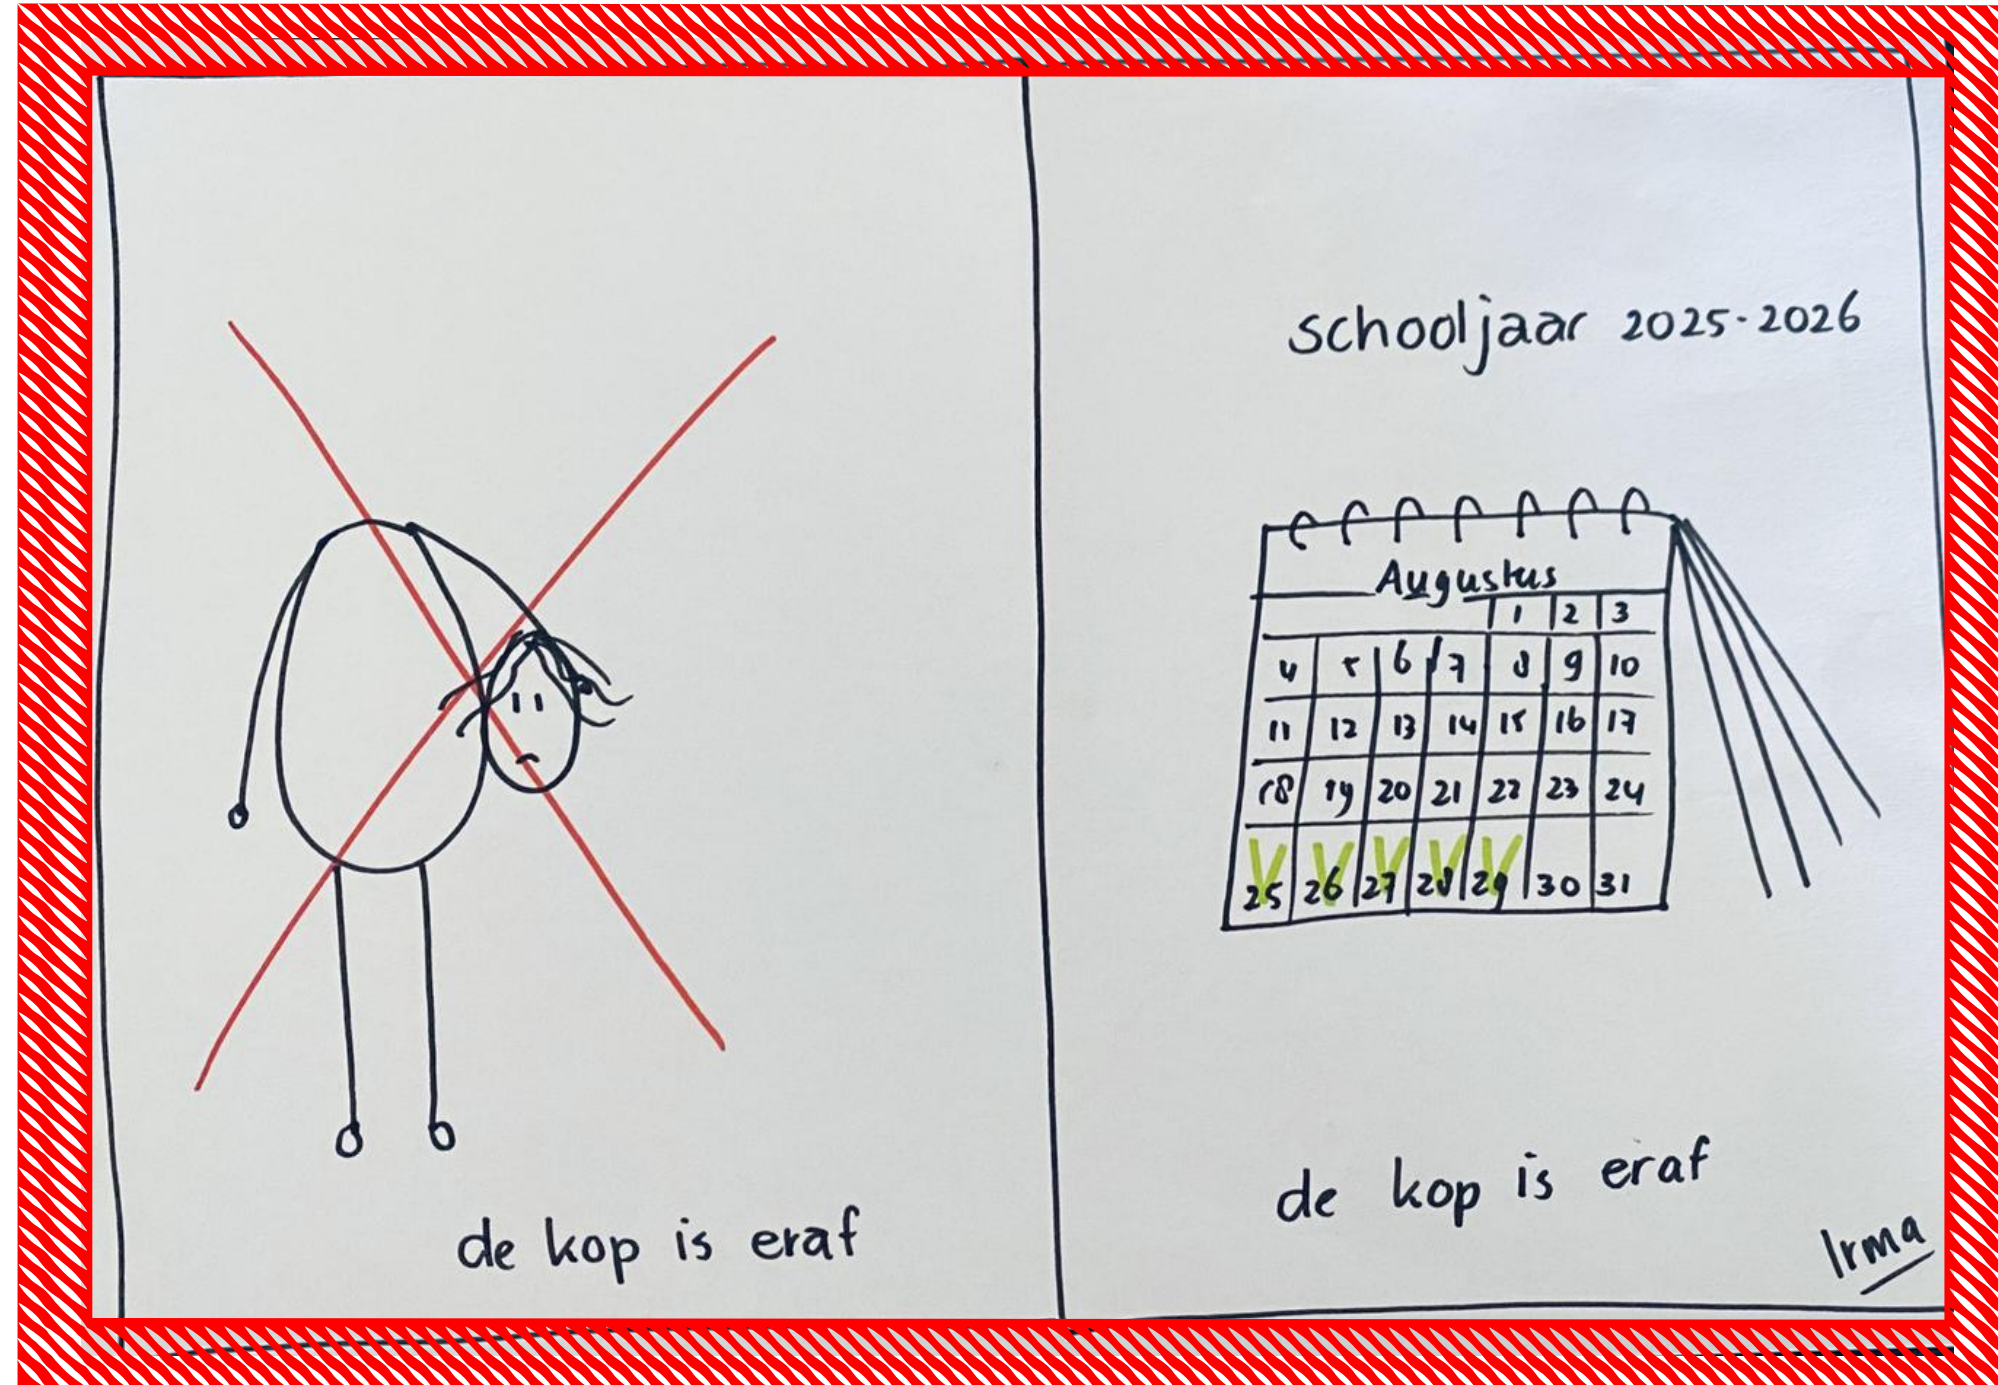 de kop is eraf
schooljaar 2025-2026
Augustus
1 2 3
4 5 6 7 8 9 10
11 12 13 14 15 16 17
18 19 20 21 22 23 24
25 26 27 28 29 30 31
de kop is eraf
Irma